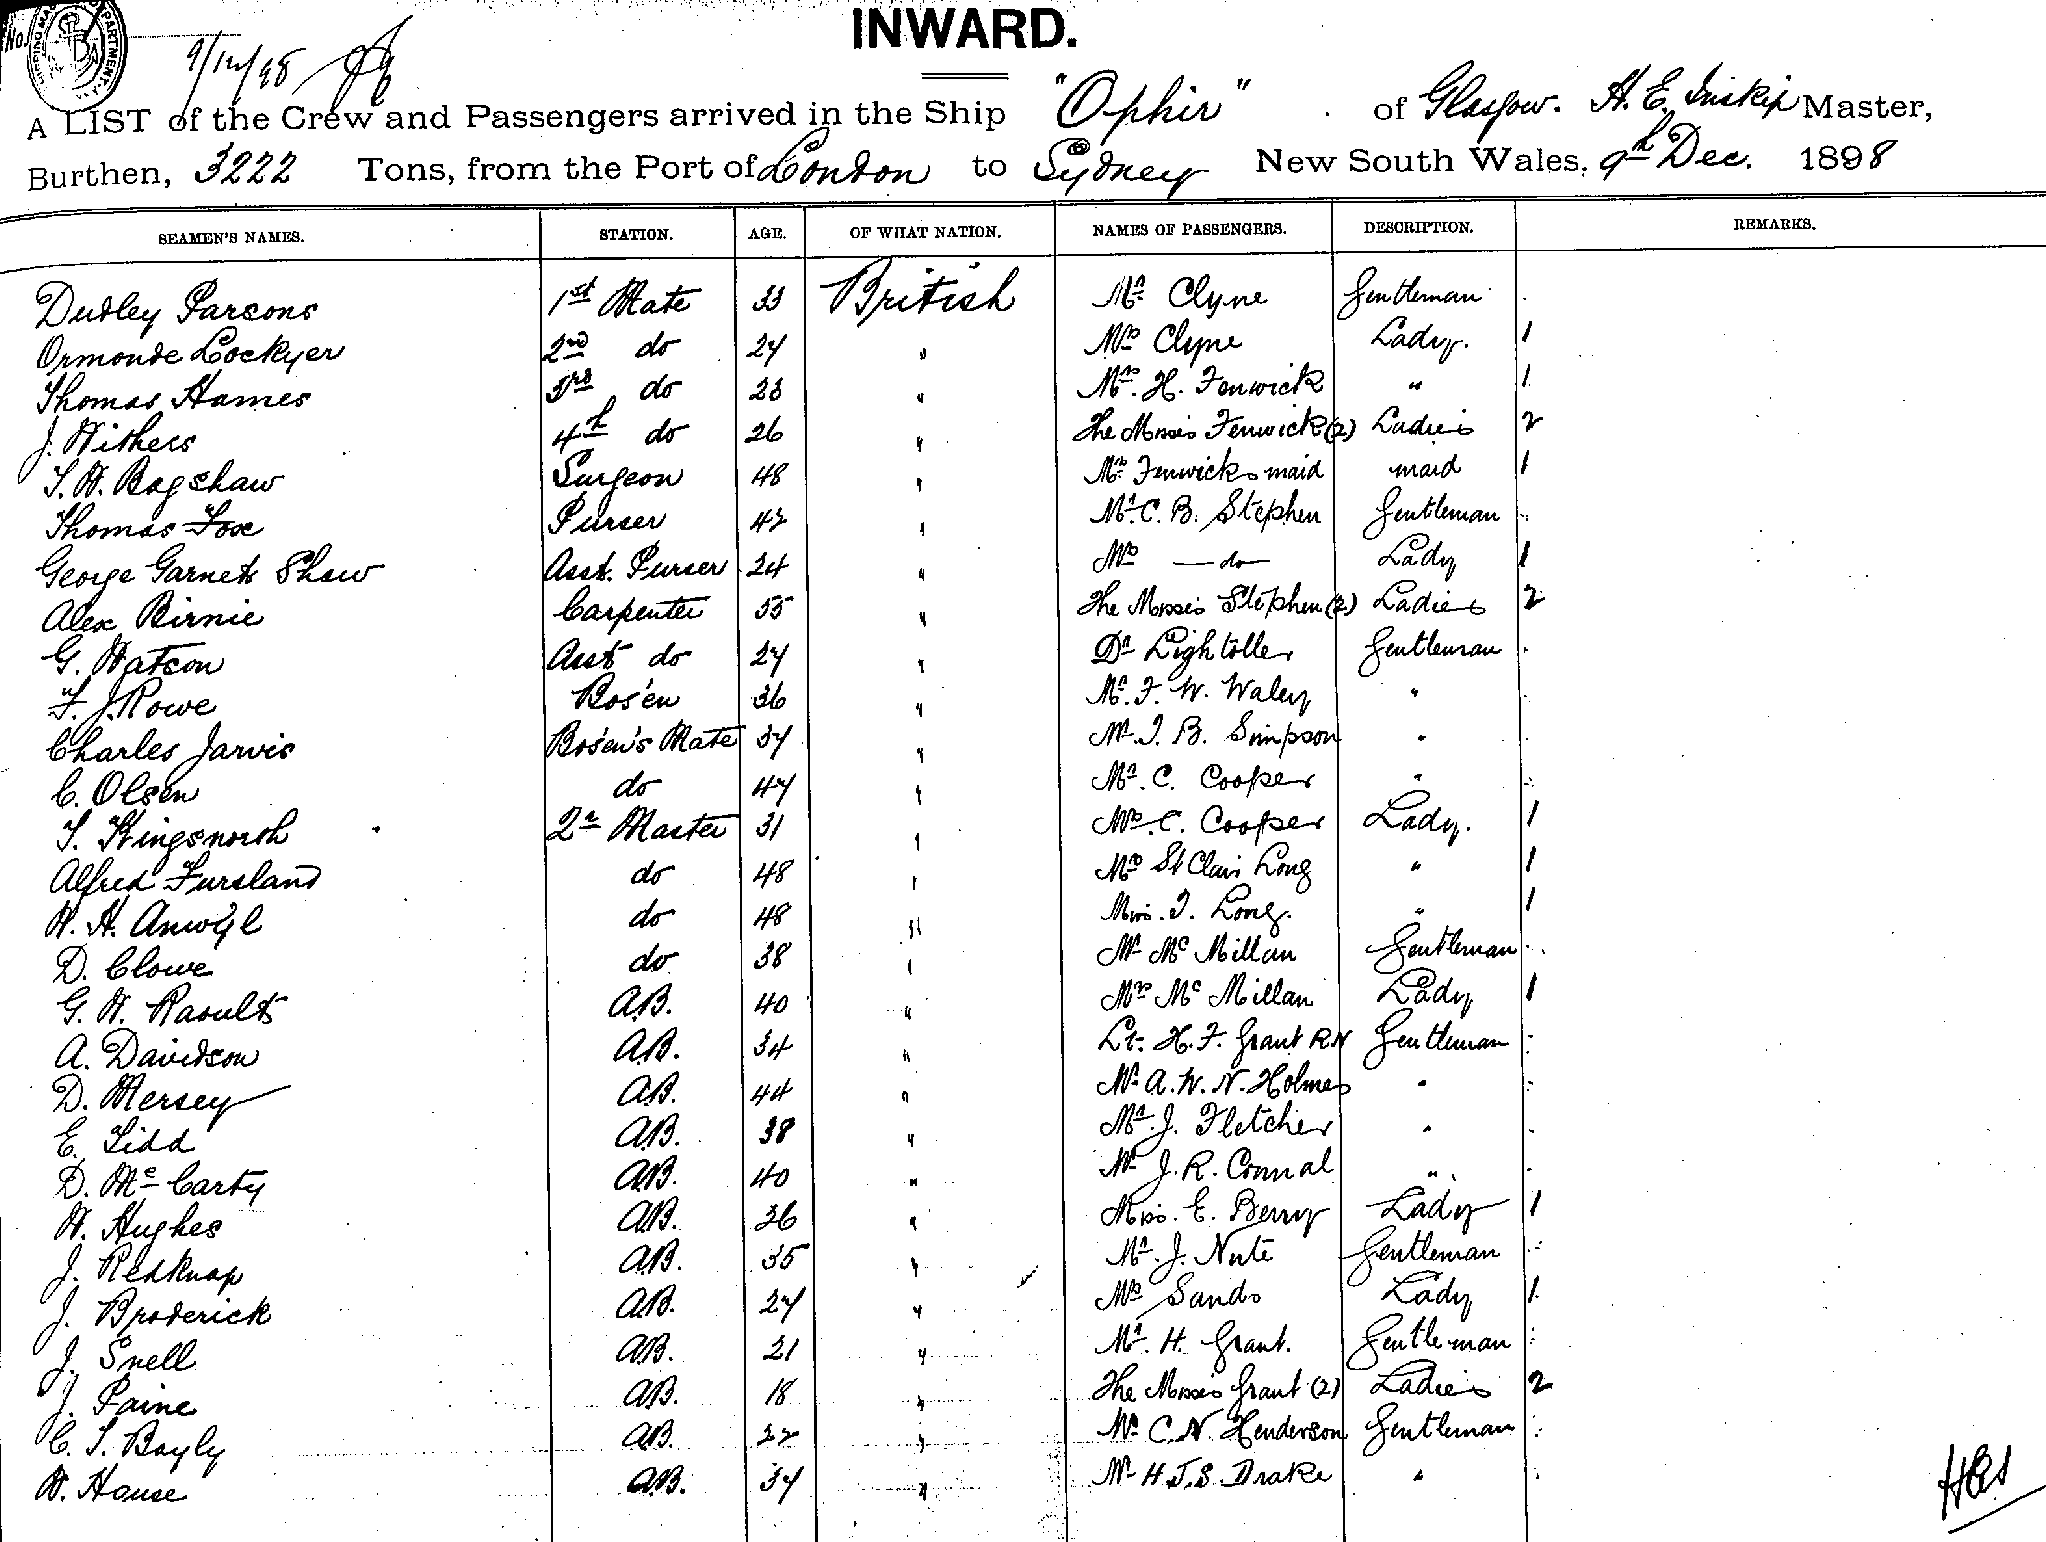 INWARD.
No.
9/12/98
A LIST of the Crew and Passengers arrived in the Ship "Ophir" of Glasgow. H. E. Inskip Master,
Burthen, 3222 Tons, from the Port of London to Sydney New South Wales, 9th Dec. 1898
SEAMEN'S NAMES. STATION. AGE. OF WHAT NATION. NAMES OF PASSENGERS. DESCRIPTION. REMARKS.
Dudley Parsons 1st Mate 33 British Mr Clyne Gentleman
Ormonde Lockyer 2nd do 27 " Mrs Clyne Lady. 1
Thomas Hames 3rd do 23 " Mrs. H. Fenwick " 1
J. Withers 4th do 26 " The Misses Fenwick (2) Ladies 2
T. W. Bagshaw Surgeon 48 " Mrs Fenwicks maid maid 1
Thomas Fox Purser 42 " Mr. C. B. Stephen Gentleman
George Garnett Shaw Asst. Purser 24 " Mrs — do — Lady 1
Alex Birnie Carpenter 55 " The Misses Stephen (2) Ladies 2
G. Watson Asst do 27 " Dr Lightoller Gentleman
F. J. Rowe Bos'en 36 " Mr. F. W. Waley "
Charles Jarvis Bos'en's Mate 37 " Mr. J. B. Simpson "
C. Olsen do 47 " Mr. C. Cooper "
T. Kingsnorth 2r Master 31 " Mrs. C. Cooper Lady. 1
Alfred Fursland do 48 " Mrs St Clair Long " 1
W. H. Anwyl do 48 " Miss. I. Long. " 1
D. Clowe do 38 " Mr McMillan Gentleman
G. W. Raoults A.B. 40 " Mrs McMillan Lady 1
A. Davidson A.B. 34 " Lt. H. F. Grant R.N Gentleman
D. Mersey A.B. 44 " Mr A. W. N. Holmes "
E. Tidd A.B. 38 " Mr. J. Fletcher "
D. McCarty A.B. 40 " Mr J. R. Connal "
W. Hughes A.B. 36 " Miss. E. Berry Lady 1
J. Redknap A.B. 35 " Mr. J. Nute Gentleman
J. Broderick A.B. 27 " Mrs Sands Lady 1
J. Snell A.B. 21 " Mr. H. Grant. Gentleman
J. Paine A.B. 18 " The Misses Grant (2) Ladies 2
C. T. Bayly A.B. 22 " Mr C. N. Henderson Gentleman
W. House A.B. 37 " Mr H. J. S. Drake "